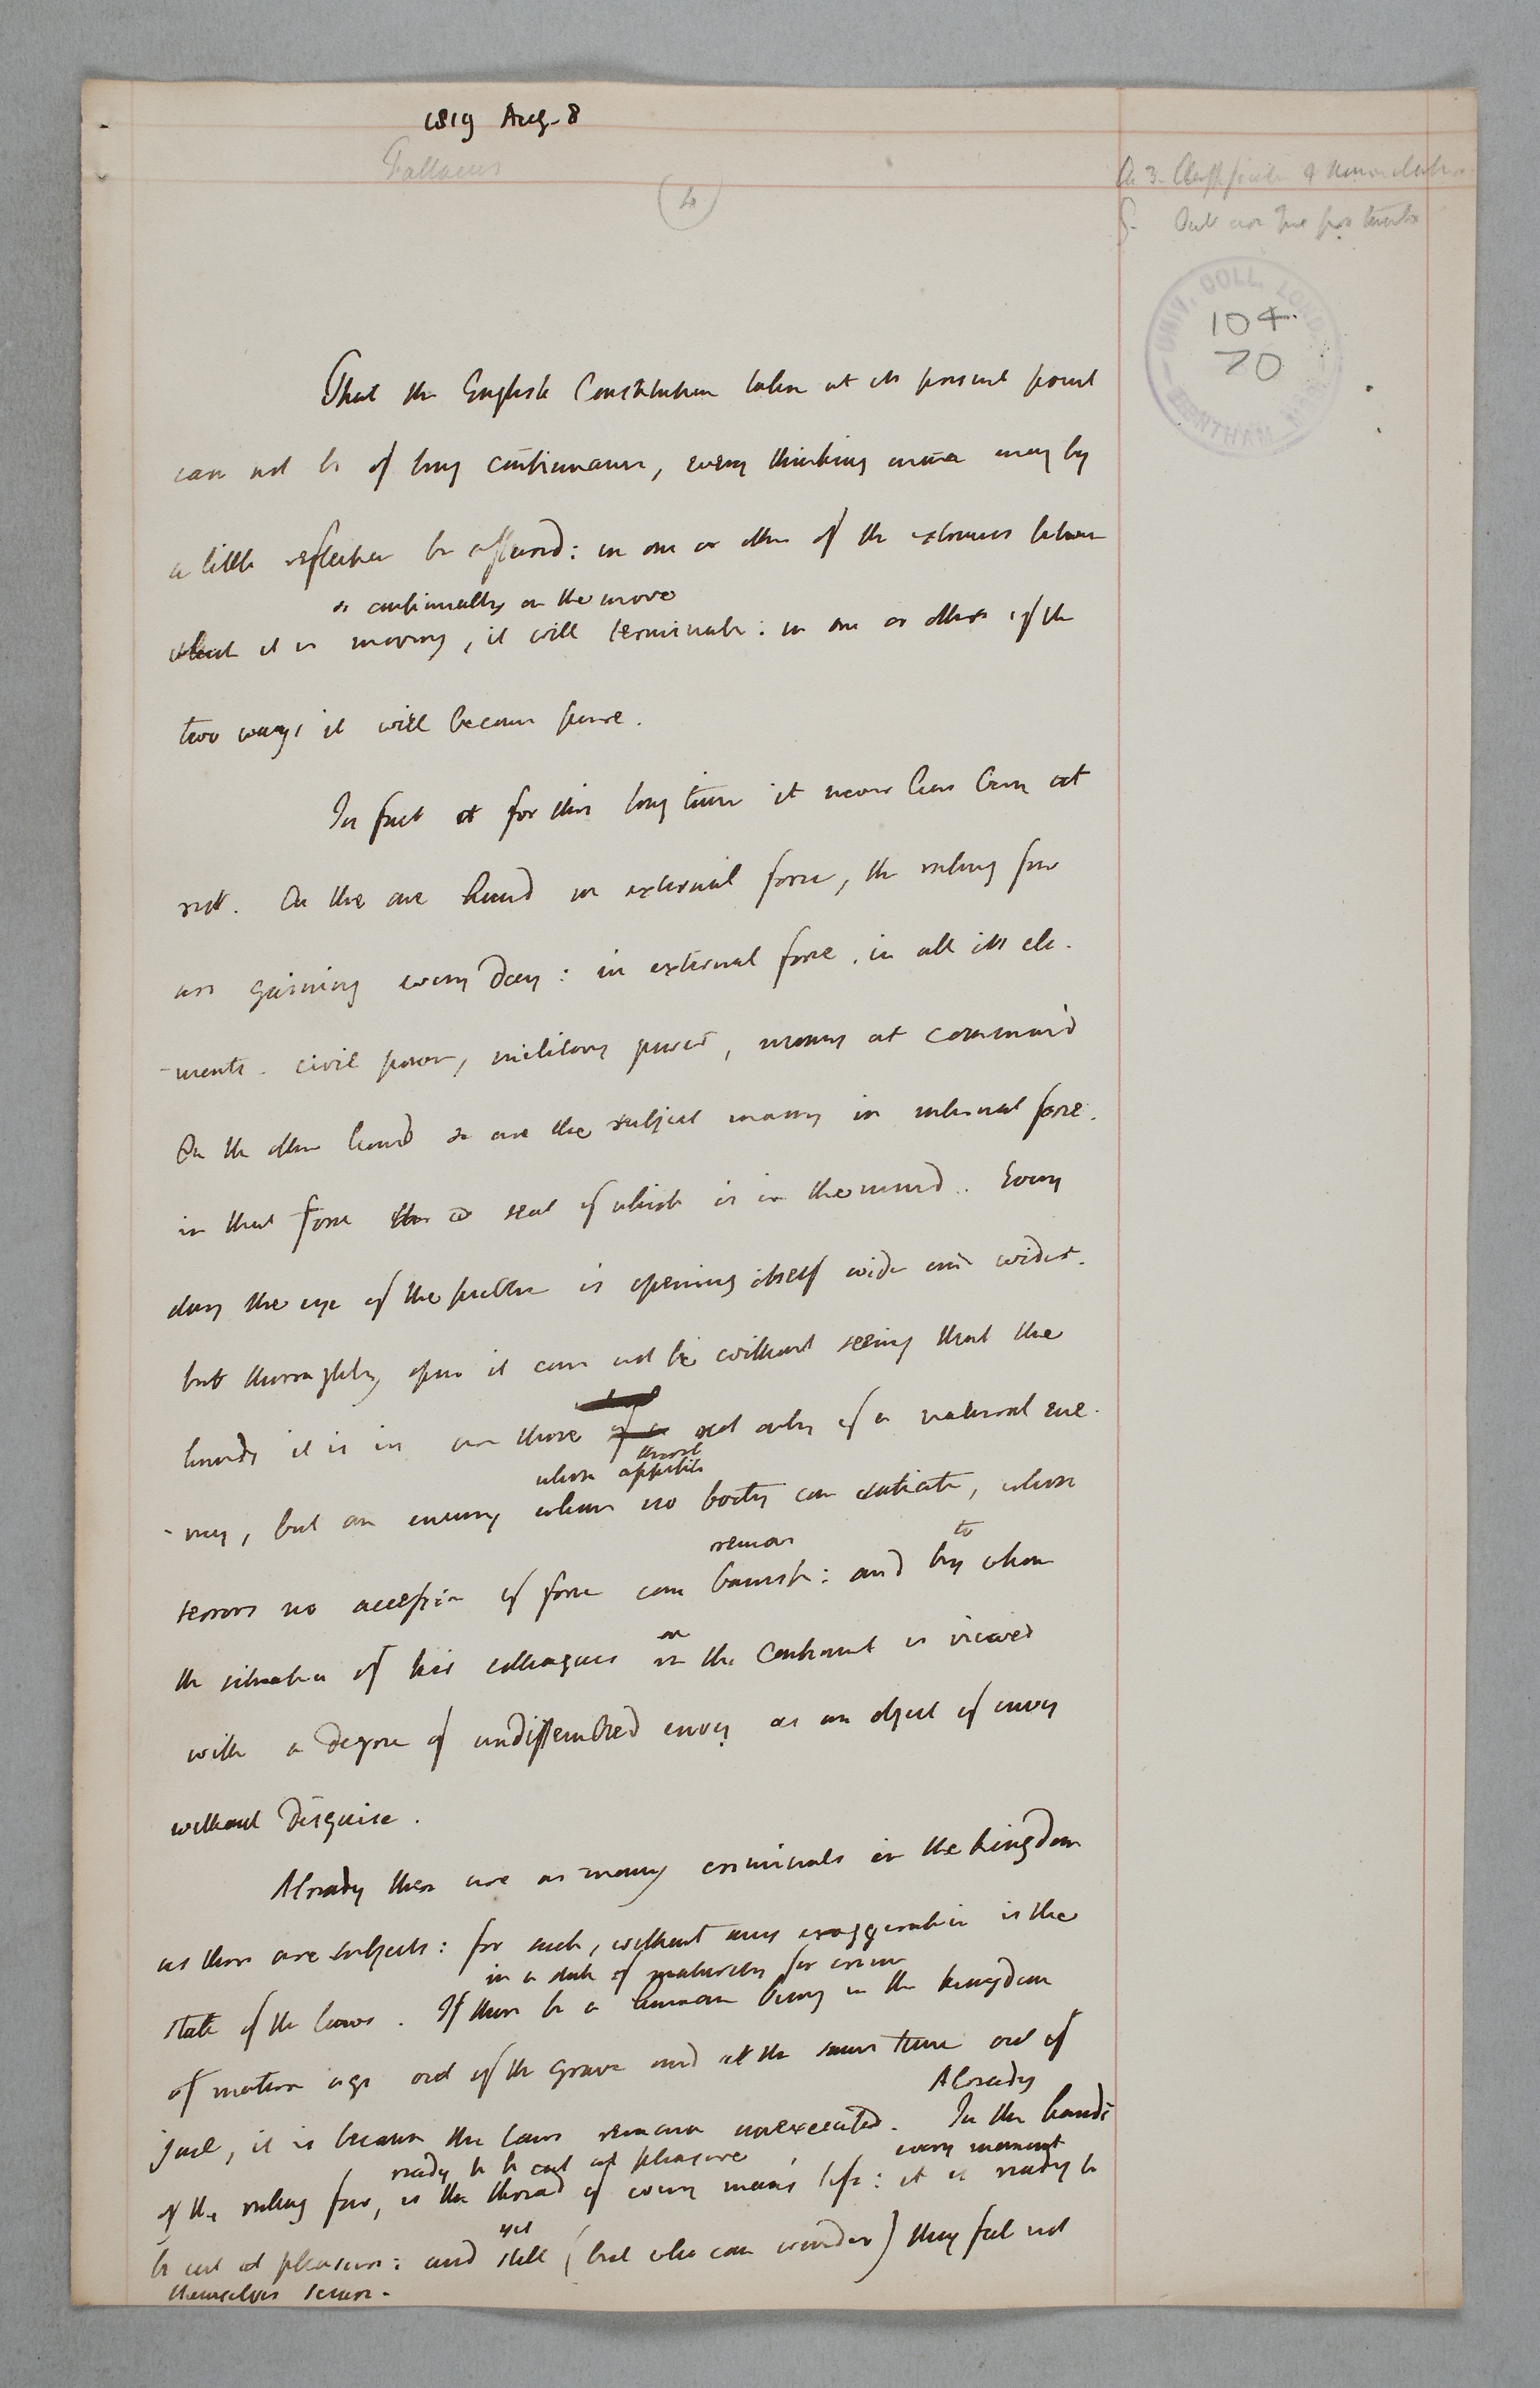 1819 Aug. 8
Fallacies
(4)
Ch. 3. Classification & Nomenclature
§.
UNIV. COLL. LOND.
BENTHAM MSS.
104
70
That the English Constitution taken at its present point
can not be of long continuance, every thinking mind may by
a little reflection be assured: in one or other of the extremes between
is continually on the move
which it is moving, it will terminate: in one or other of the
two ways it will become pure.
In fact for this long time it never has been at
rest. On the one hand in external force, the ruling few
are gaining every day: in external force, in all its ele-
-ments. civil power, military power, money at command
On the other hand so are the subject many in internal force.
in that force the seat of which is in the mind. Every
day the eye of the public is opening itself wide and wider.
but thoroughly open it can not be without seeing that the
hands it is in are those of a not only of a natural ene-
whose appetite thirst
-my, but an enemy whom no booty can satiate, whose
remove
to
terrors no accession of force can banish: and by whom
on
the situation of his colleagues in the Continent is viewed
with a degree of undissembled envy as an object of envy
without disguise.
Already there are as many criminals in the kingdom
as there are subjects: for such, without any exaggeration is the
in a state of maturity for crime
state of the laws. If there be a human being in the kingdom
of mature age out of the grave and at the same time out of
Already
jail, it is because the laws remain unexecuted. In the hands
ready to be cut at pleasure
every moment
of the ruling few, is the thread of every man's life: it is ready to
yet
be cut at pleasure: and still (but who can wonder) they feel not
themselves secure.